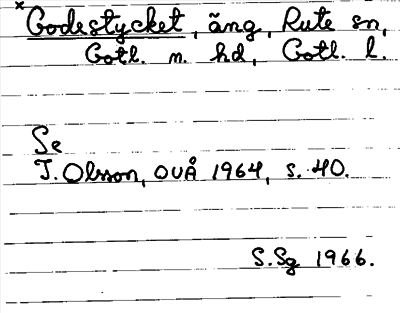 ×Godestycket, äng, Rute sn,
Gotl. n. hd, Gotl. l.
Se
I. Olsson, OUÅ 1964, s. 40.
S.Sg 1966.